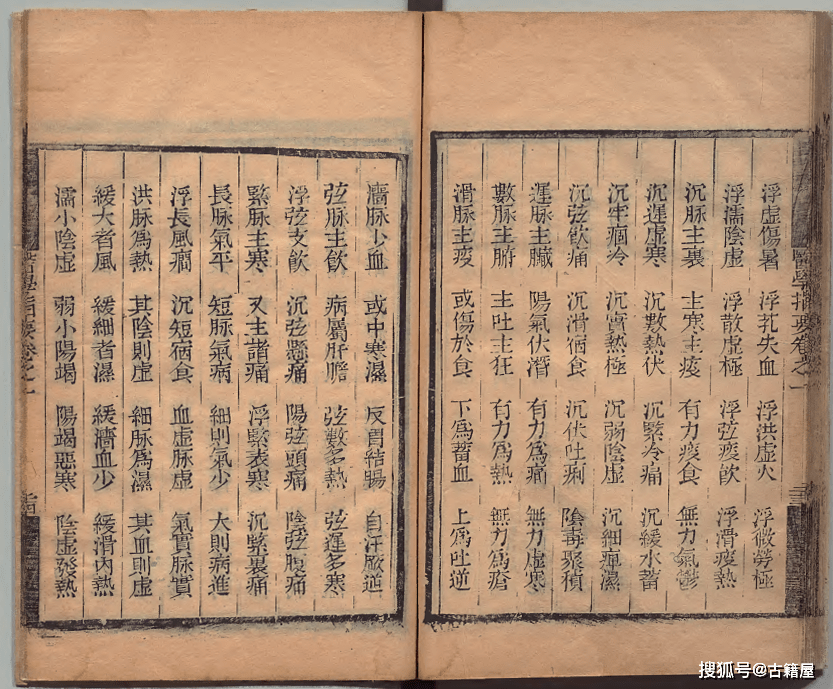 醫學指要卷之一
浮虛傷暑 浮芤失血 浮洪虛火 浮微勞極
浮濡陰虛 浮散虛極 浮弦痰飲 浮滑痰熱
沉脉主裏 主寒主痰 有力痰食 無力氣鬱
沉遲虛寒 沉數熱伏 沉緊冷痛 沉緩水蓄
沉牢痼冷 沉實熱極 沉弱陰虛 沉細痺濕
沉弦飲痛 沉滑宿食 沉伏吐痢 陰毒聚積
遲脉主臟 陽氣伏潛 有力爲痛 無力虛寒
數脉主腑 主吐主狂 有力爲熱 無力爲瘡
滑脉主痰 或傷於食 下爲蓄血 上爲吐逆
濇脉少血 或中寒濕 反胃結腸 自汗厥逆
弦脉主飲 病屬肝膽 弦數多熱 弦遲多寒
浮弦支飲 沉弦懸痛 陽弦頭痛 陰弦腹痛
緊脉主寒 又主諸痛 浮緊表寒 沉緊裏痛
長脉氣平 短脉氣病 細則氣少 大則病進
浮長風癎 沉短宿食 血虛脉虛 氣實脉實
洪脉爲熱 其陰則虛 細脉爲濕 其血則虛
緩大者風 緩細者濕 緩濇血少 緩滑內熱
濡小陰虛 弱小陽竭 陽竭惡寒 陰虛發熱
醫學指要卷之一
搜狐号@古籍屋